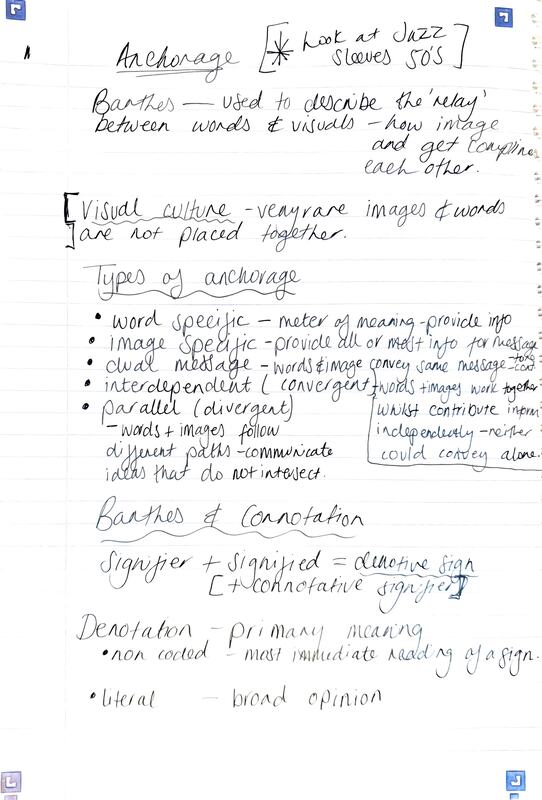 Anchorage [* Look at Jazz
sleeves 50'S]
Barthes — used to describe the 'relay'
between words & visuals – how image
and get
each other.
[Visual culture - very rare images & words
] are not placed together.
Types of anchorage
• word specific – meter of meaning - provide info
• image specific - provide all or most info for message
• dual message - words & image convey same message
• interdependent (convergent - words + images work together
• parallel (divergent) whilst contribute
- words + images follow independently - neither
different paths - communicate could convey alone.
ideas that do not intersect.
Barthes & Connotation
signifier + signified = denotive sign
[+ connotative signifier]
Denotation - primary meaning
• non coded - most immediate reading of a sign.
• literal — broad opinion